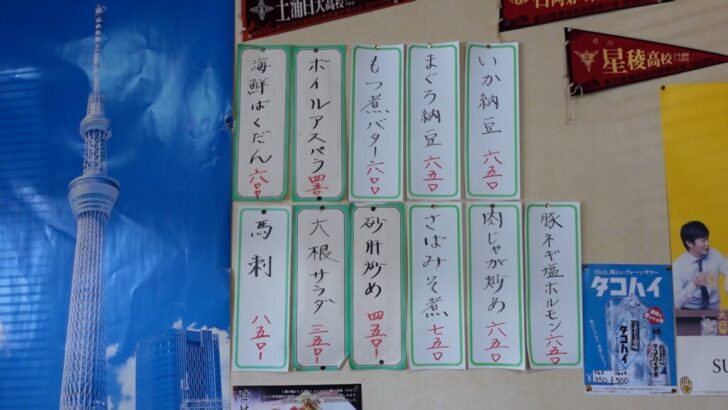 土浦日大高校
石川
星稜高校
いか納豆 六五〇
まぐろ納豆 六五〇
もつ煮バター 六〇〇
ボイルアスパラ 四五〇
海鮮ばくだん 六〇〇
豚ネギ塩ホルモン 六五〇
肉じゃが炒め 六五〇
さばみそ煮 七五〇
砂肝炒め 四五〇
大根サラダ 三五〇
馬刺 八五〇
タコハイ
タコハイ
¥350
¥500
SU